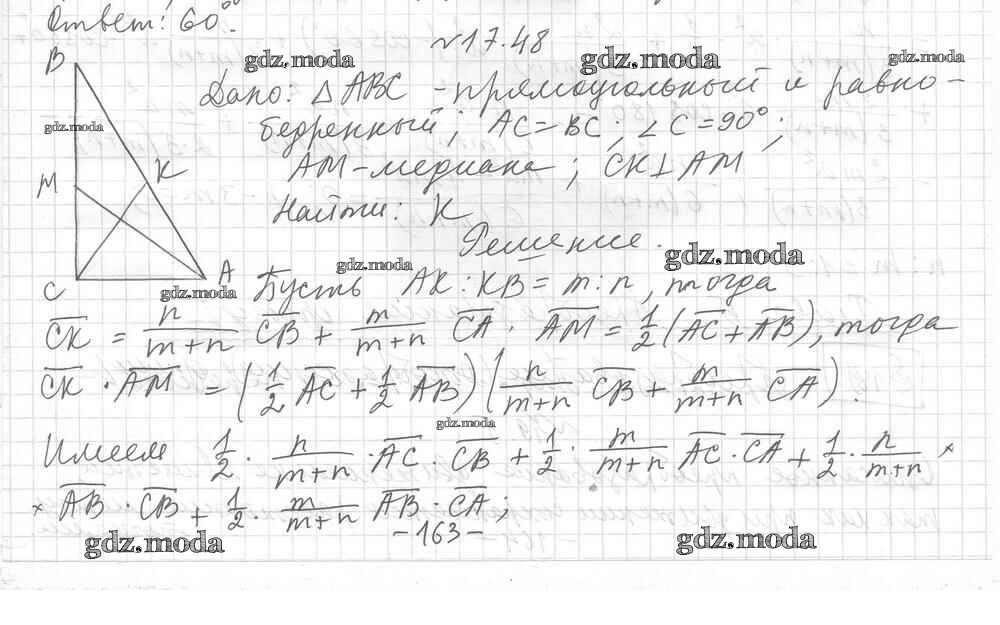 Ответ: 60°.
№17.48
B
gdz.moda
gdz.moda
gdz.moda
Дано: △ABC - прямоугольный и равно-
бедренный; AC=BC; ∠C=90°;
gdz.moda
M
K
AM-медиана; CK⊥AM
Найти: K
Решение.
gdz.moda
gdz.moda
C
A
gdz.moda
Пусть AK:KB=m:n, тогда
CK̅ = n/(m+n) CB̅ + m/(m+n) CA̅ · AM̅ = 1/2 (AC̅ + AB̅), тогда
CK̅ · AM̅ = (1/2 AC̅ + 1/2 AB̅)(n/(m+n) CB̅ + m/(m+n) CA̅).
gdz.moda
Имеем 1/2 · n/(m+n) · AC̅ · CB̅ + 1/2 · m/(m+n) AC̅ · CA̅ + 1/2 · n/(m+n) ×
× AB̅ · CB̅ + 1/2 · m/(m+n) AB̅ · CA̅;
-163-
gdz.moda
gdz.moda